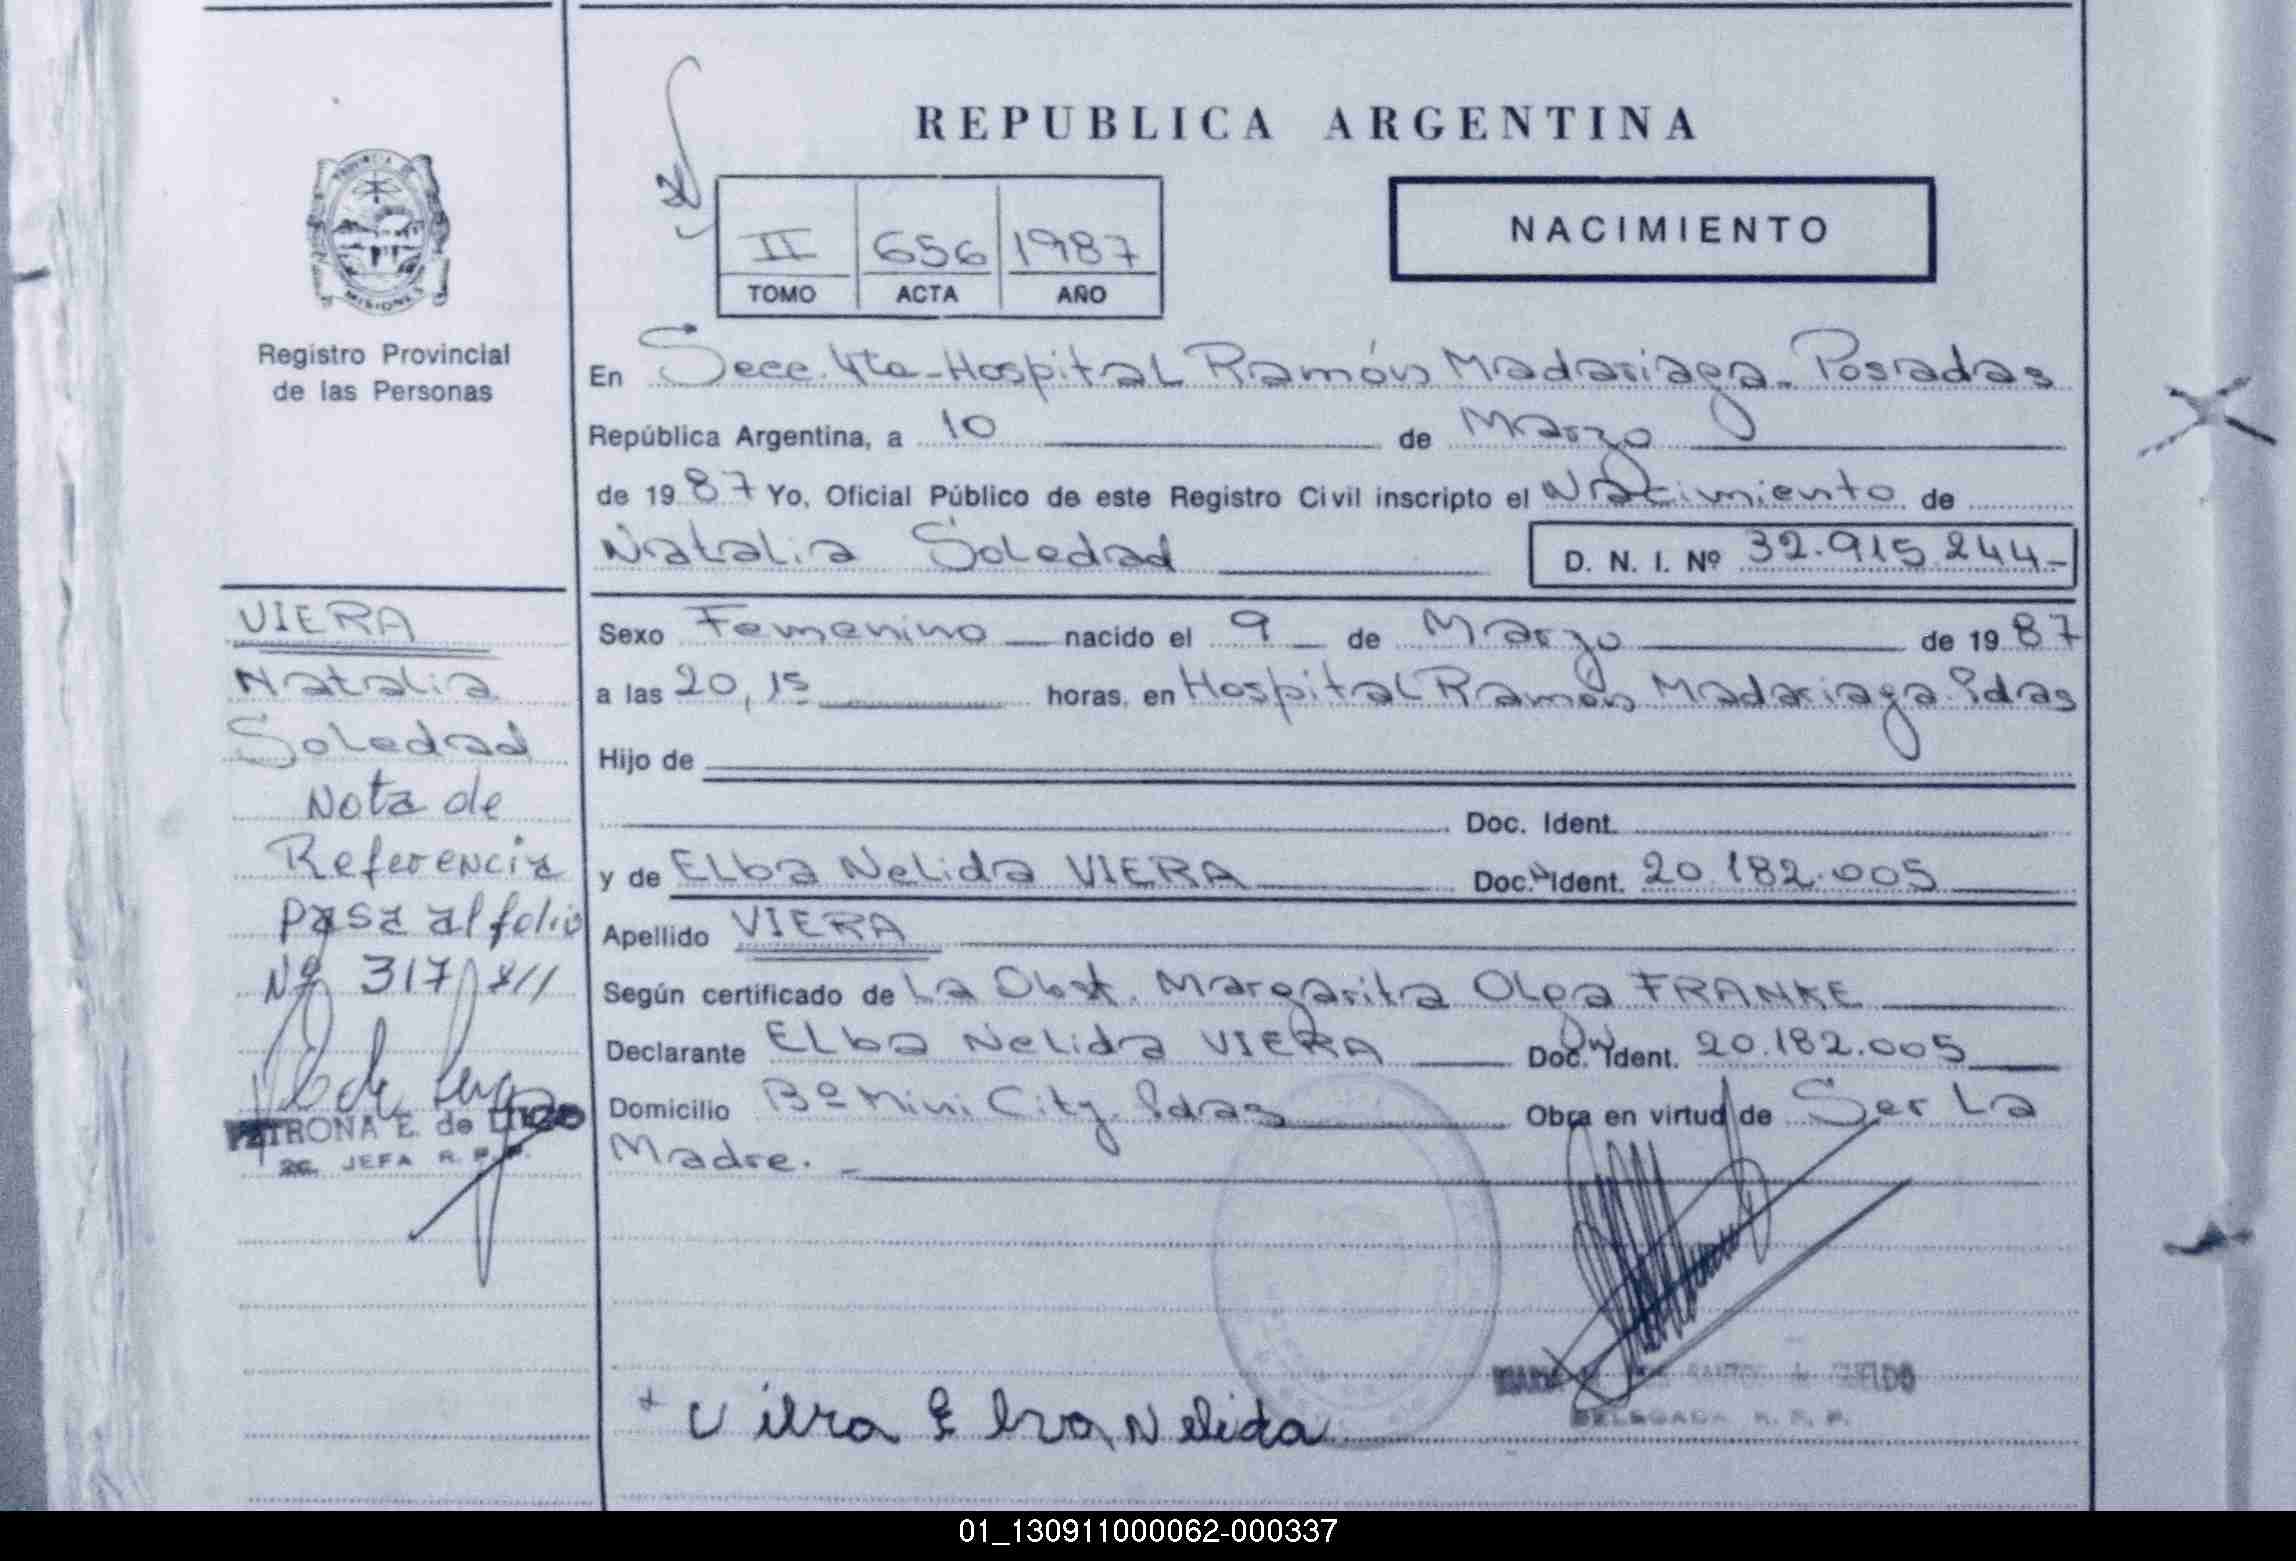 REPUBLICA ARGENTINA
NACIMIENTO
II 656 1987
TOMO ACTA AÑO
PROVINCIA DE
MISIONES
Registro Provincial
de las Personas
En Secc. 4ta-Hospital Ramón Madariaga-Posadas
República Argentina, a 10 de Marzo
de 1987 Yo, Oficial Público de este Registro Civil inscripto el Nacimiento de
Natalia Soledad D. N. I. Nº 32.915.244-
VIERA
Natalia
Soledad
Nota de
Referencia
Pasa al folio
Nº 317
PETRONA E. de LUGO
JEFA R. P. P.
Sexo Femenino nacido el 9 de Marzo de 1987
a las 20,15 horas, en Hospital Ramón Madariaga. Pdas
Hijo de
Doc. Ident.
y de Elba Nelida VIERA Doc. Ident. 20.182.005
Apellido VIERA
Según certificado de La Obst. Margarita Olga FRANKE
Declarante Elba Nelida VIERA Doc. Ident. 20.182.005
Domicilio Bº Mini City. Pdas Obra en virtud de Ser La
Madre. -
Viera Elva Nelida
DELEGADA R. P. P.
01_130911000062-000337